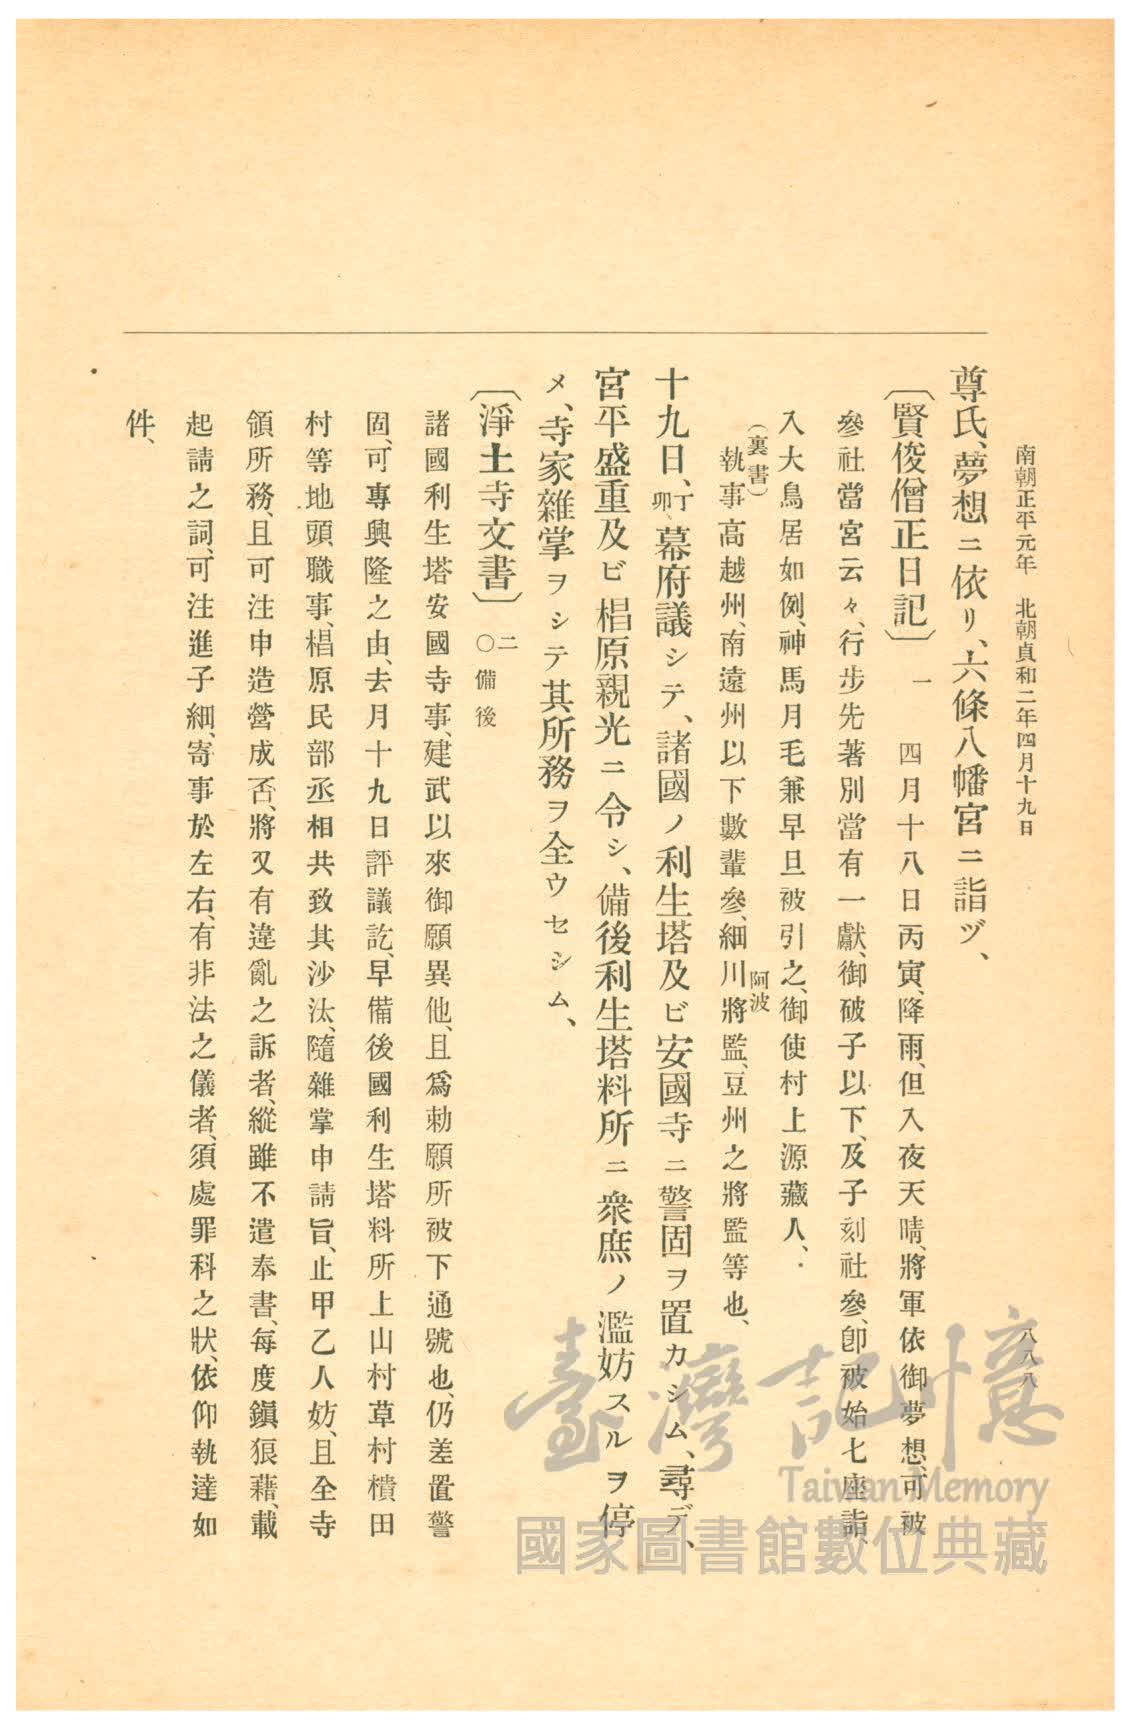 南朝正平元年　北朝貞和二年四月十九日
八八八
尊氏、夢想ニ依リ、六條八幡宮ニ詣ヅ、
〔賢俊僧正日記〕一　四月十八日丙寅、降雨、但入夜天晴、將軍依御夢想、可被
參社當宮云々、行步先著別當有一獻、御破子以下、及子刻社參、卽被始七座詣、
入大鳥居如例、神馬月毛兼早旦被引之、御使村上源藏人、
（裏書）
阿波
執事高越州、南遠州以下數輩參、細川將監、豆州之將監等也、
十九日、丁卯、幕府議シテ、諸國ノ利生塔及ビ安國寺ニ警固ヲ置カシム、尋デ、
宮平盛重及ビ椙原親光ニ令シ、備後利生塔料所ニ衆庶ノ濫妨スルヲ停
メ、寺家雜掌ヲシテ其所務ヲ全ウセシム、
〔淨土寺文書〕二○備後
諸國利生塔安國寺事、建武以來御願異他、且爲勅願所被下通號也、仍差置警
固、可專興隆之由、去月十九日評議訖、早備後國利生塔料所上山村草村樻田
村等地頭職事、椙原民部丞相共致其沙汰、隨雜掌申請旨、止甲乙人妨、且全寺
領所務、且可注申造營成否、將又有違亂之訴者、縱雖不遣奉書、每度鎭狼藉、載
起請之詞、可注進子細、寄事於左右、有非法之儀者、須處罪科之狀、依仰執達如
件、
臺灣記憶
Taiwan Memory
國家圖書館數位典藏